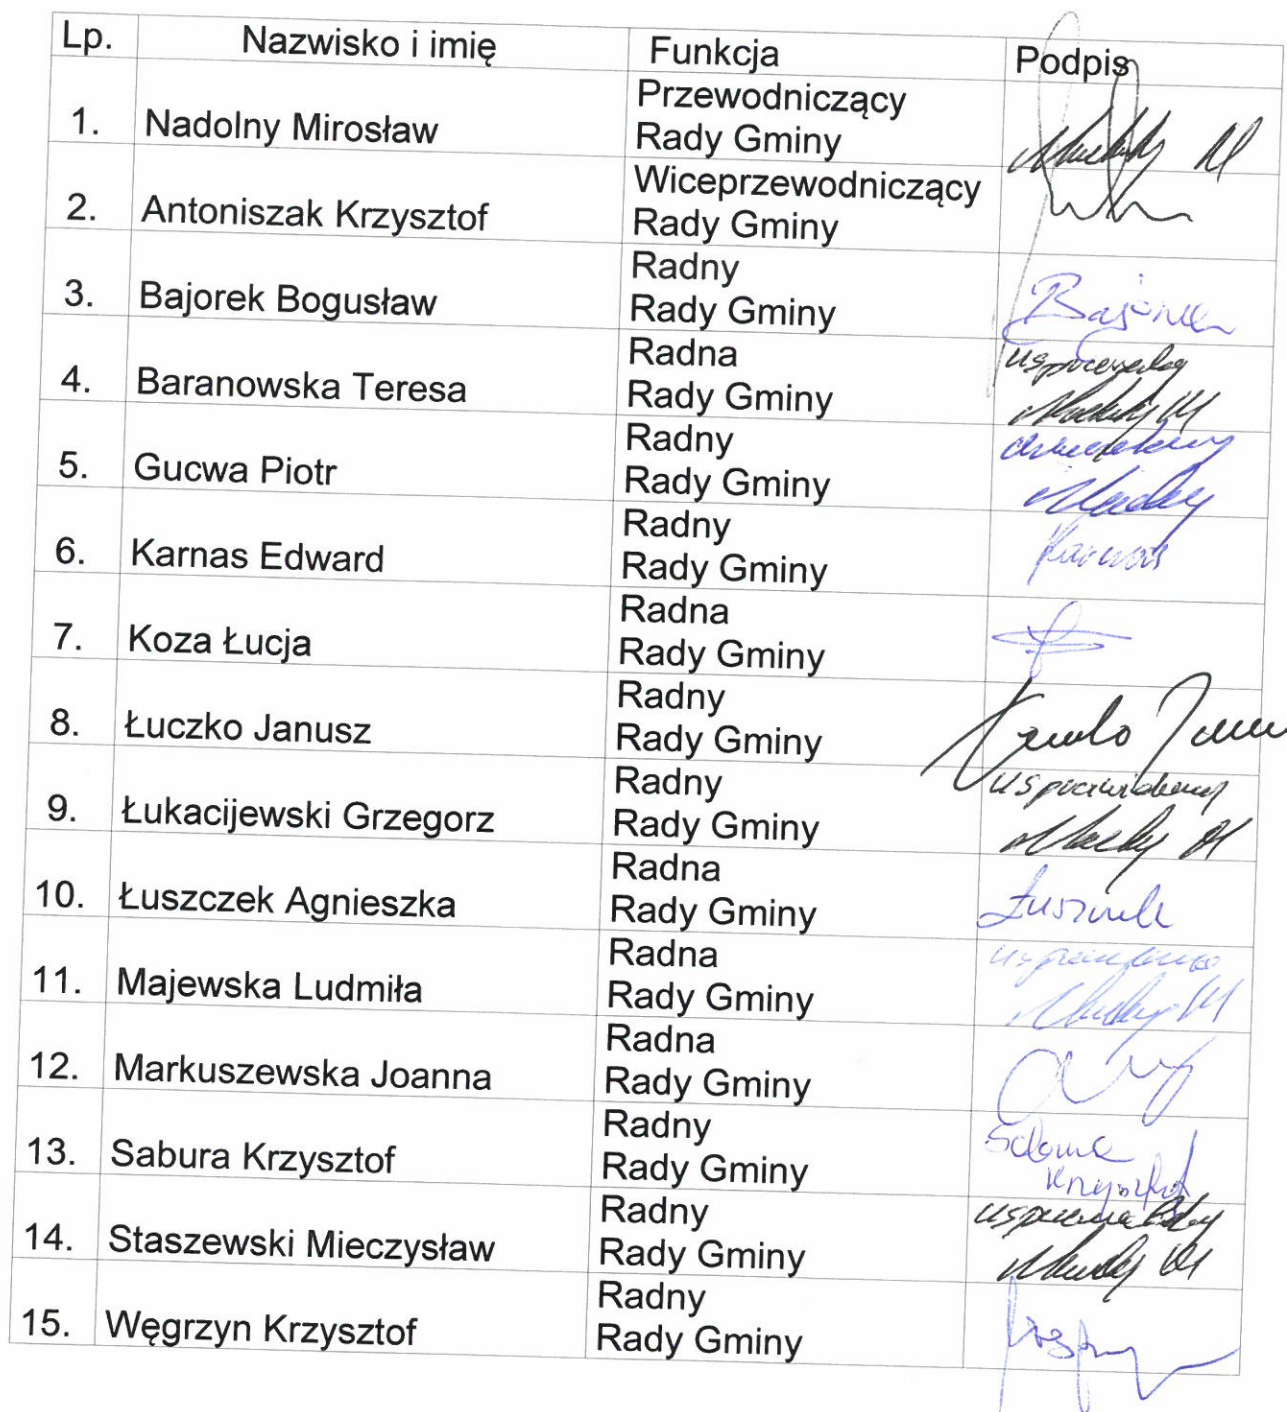 Lp. Nazwisko i imię Funkcja Podpis
1. Nadolny Mirosław Przewodniczący
Rady Gminy
2. Antoniszak Krzysztof Wiceprzewodniczący
Rady Gminy
3. Bajorek Bogusław Radny
Rady Gminy Bajorek
4. Baranowska Teresa Radna
Rady Gminy
5. Gucwa Piotr Radny
Rady Gminy
6. Karnas Edward Radny
Rady Gminy Karnas
7. Koza Łucja Radna
Rady Gminy
8. Łuczko Janusz Radny
Rady Gminy
9. Łukacijewski Grzegorz Radny
Rady Gminy
10. Łuszczek Agnieszka Radna
Rady Gminy Łuszczek
11. Majewska Ludmiła Radna
Rady Gminy
12. Markuszewska Joanna Radna
Rady Gminy
13. Sabura Krzysztof Radny
Rady Gminy Sabura
Krzysztof
14. Staszewski Mieczysław Radny
Rady Gminy
15. Węgrzyn Krzysztof Radny
Rady Gminy